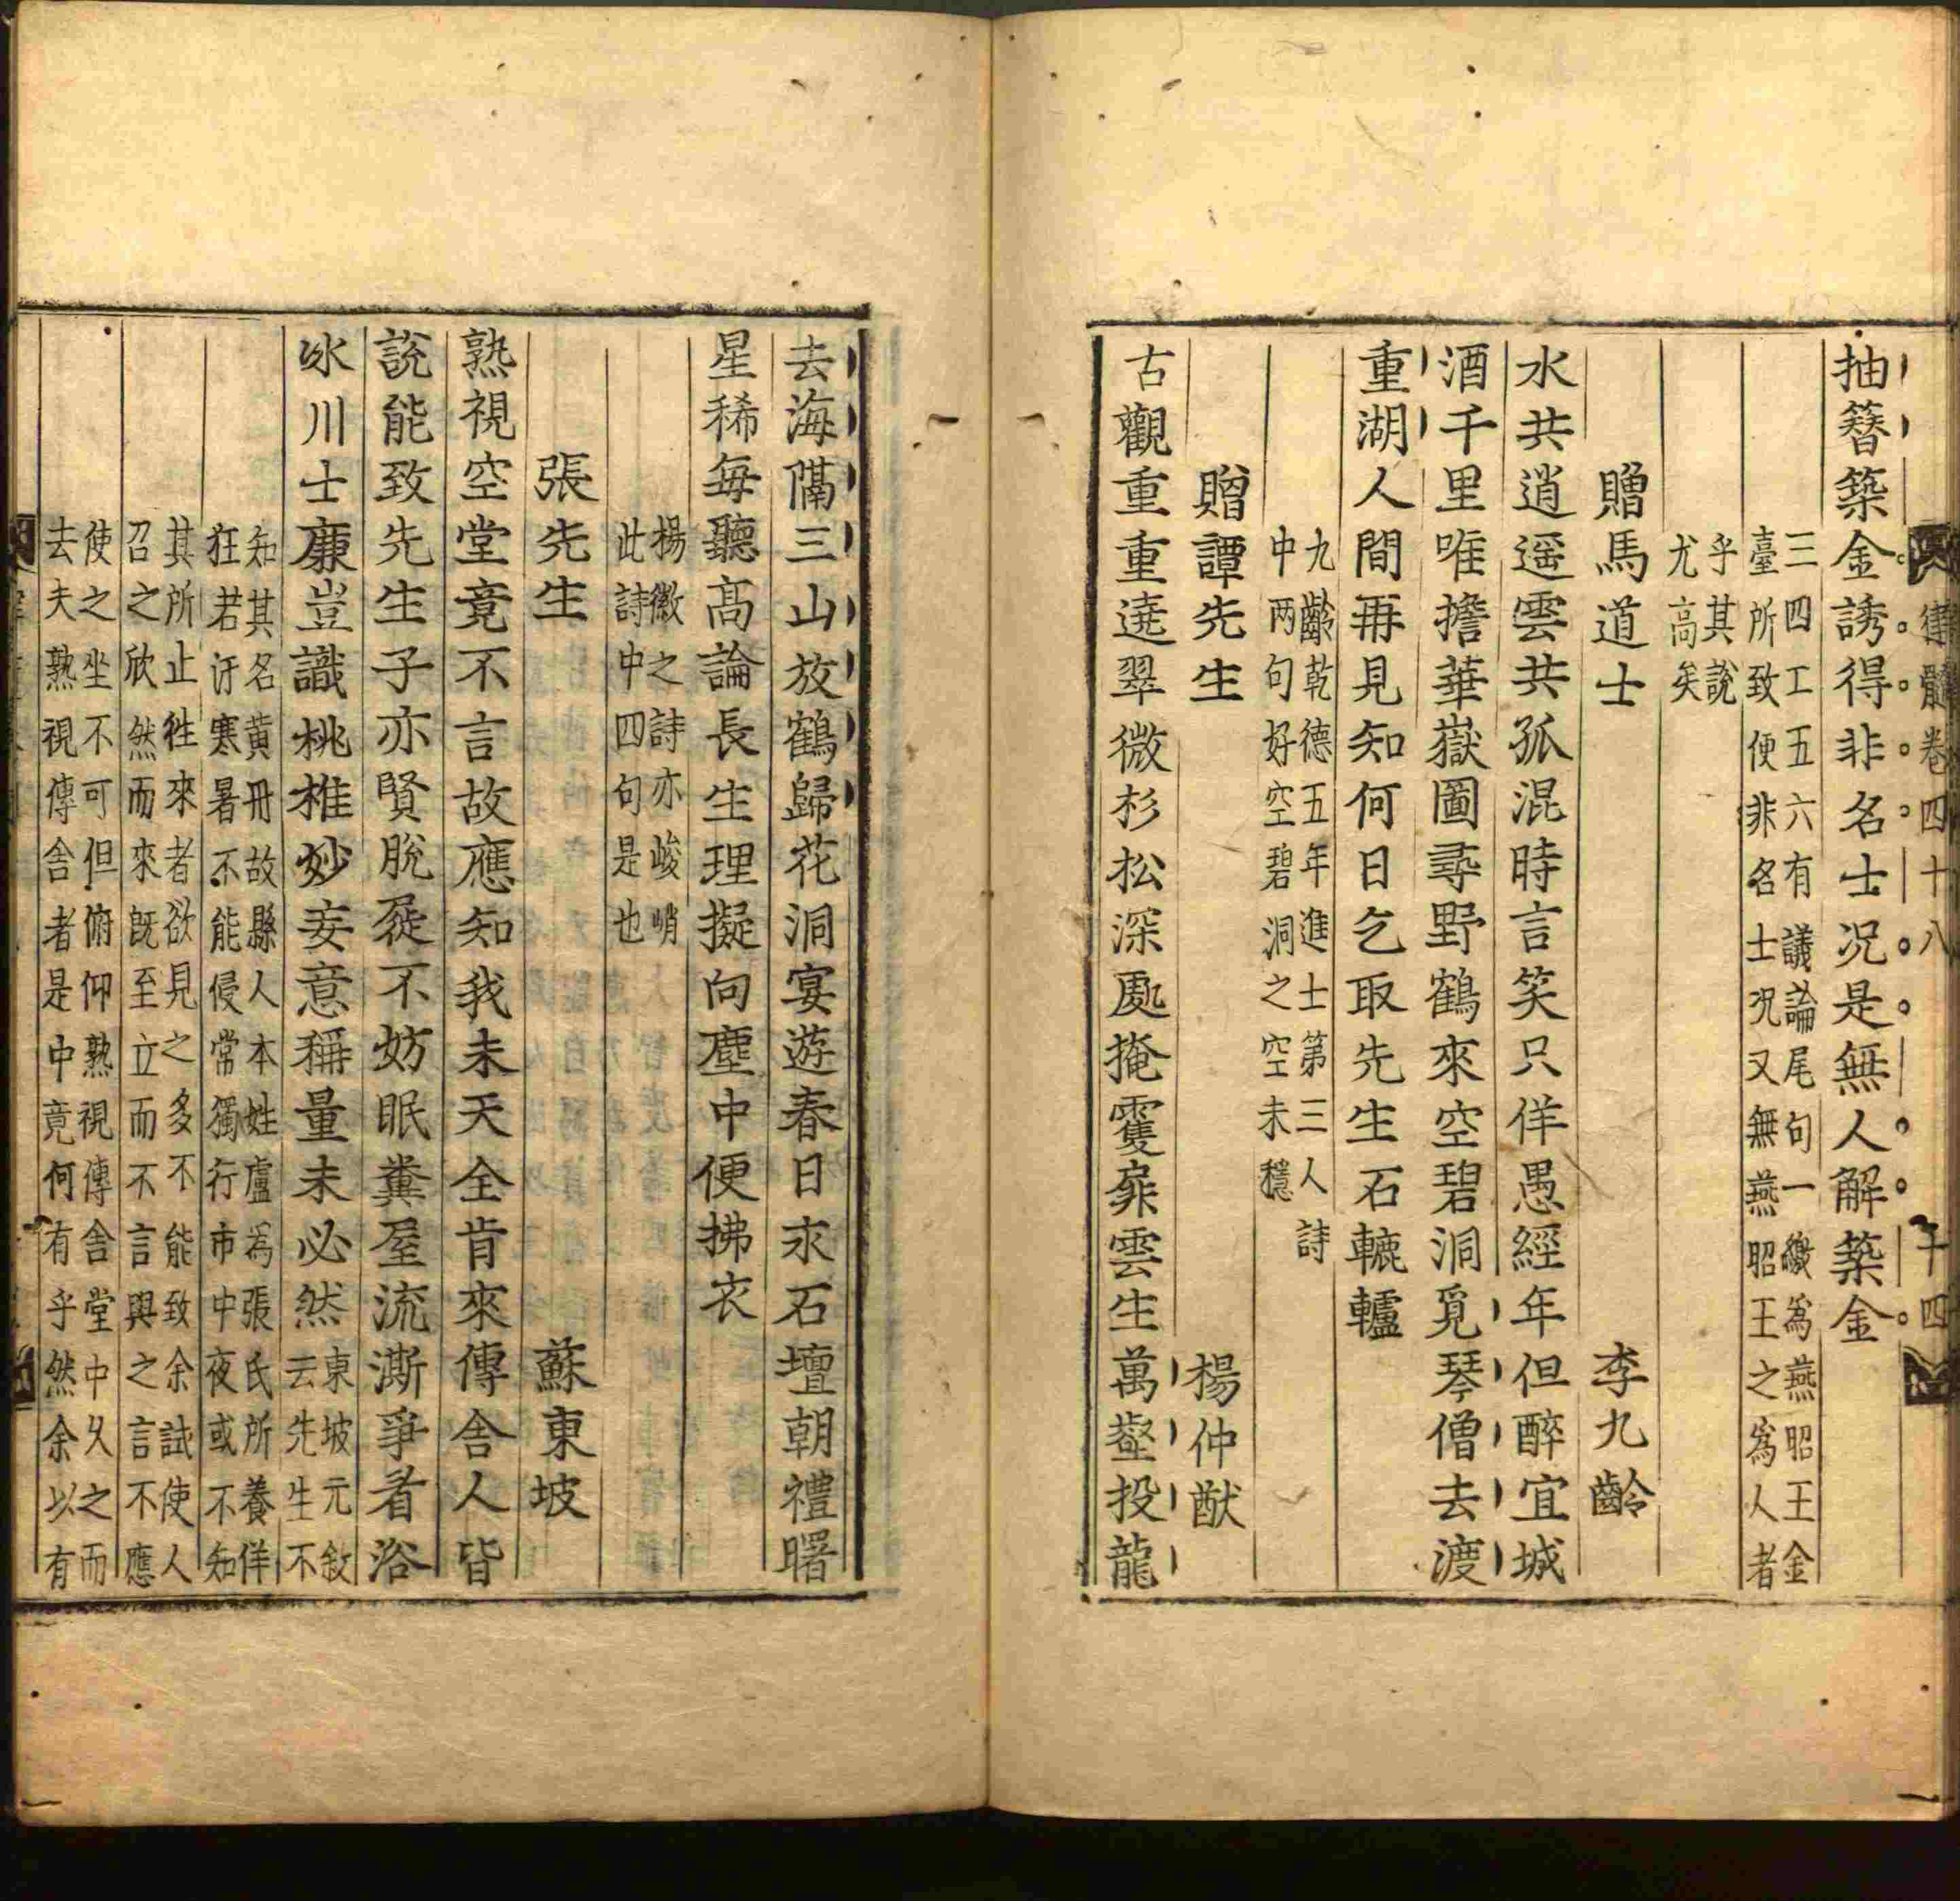 髓卷四十八 十四
抽簪築金誘得非名士况是無人解築金
三四工五六有議論尾句一繳為燕昭王金
臺所致便非名士况又無燕昭王之為人者
乎其說
尤高矣
贈馬道士 李九齡
水共逍遥雲共孤混時言笑只佯愚經年但醉宜城
酒千里唯擔華嶽圖尋野鶴來空碧洞覓琴僧去渡
重湖人間再見知何日乞取先生石轆轤
九齡乾德五年進士第三人詩
中两句好空碧洞之空未穩
贈譚先生 楊仲猷
古觀重重遶翠微杉松深處掩雙扉雲生萬壑投龍
去海隔三山放鶴歸花洞宴遊春日永石壇朝禮曙
星稀每聽高論長生理擬向塵中便拂衣
楊徽之詩亦峻峭
此詩中四句是也
張先生 蘇東坡
熟視空堂竟不言故應知我未天全肯來傳舍人皆
說能致先生子亦賢脫屣不妨眠糞屋流澌爭看浴
氷川士廉豈識桃椎妙妄意稱量未必然
東坡元敘
云先生不
知其名黃冊故縣人本姓盧為張氏所養佯
狂若汙寒暑不能侵常獨行市中夜或不知
其所止徃來者欲見之多不能致余試使人
召之欣然而來旣至立而不言與之言不應
使之坐不可但俯仰熟視傳舍堂中久之而
去夫熟視傳舍者是中竟何有乎然余以有